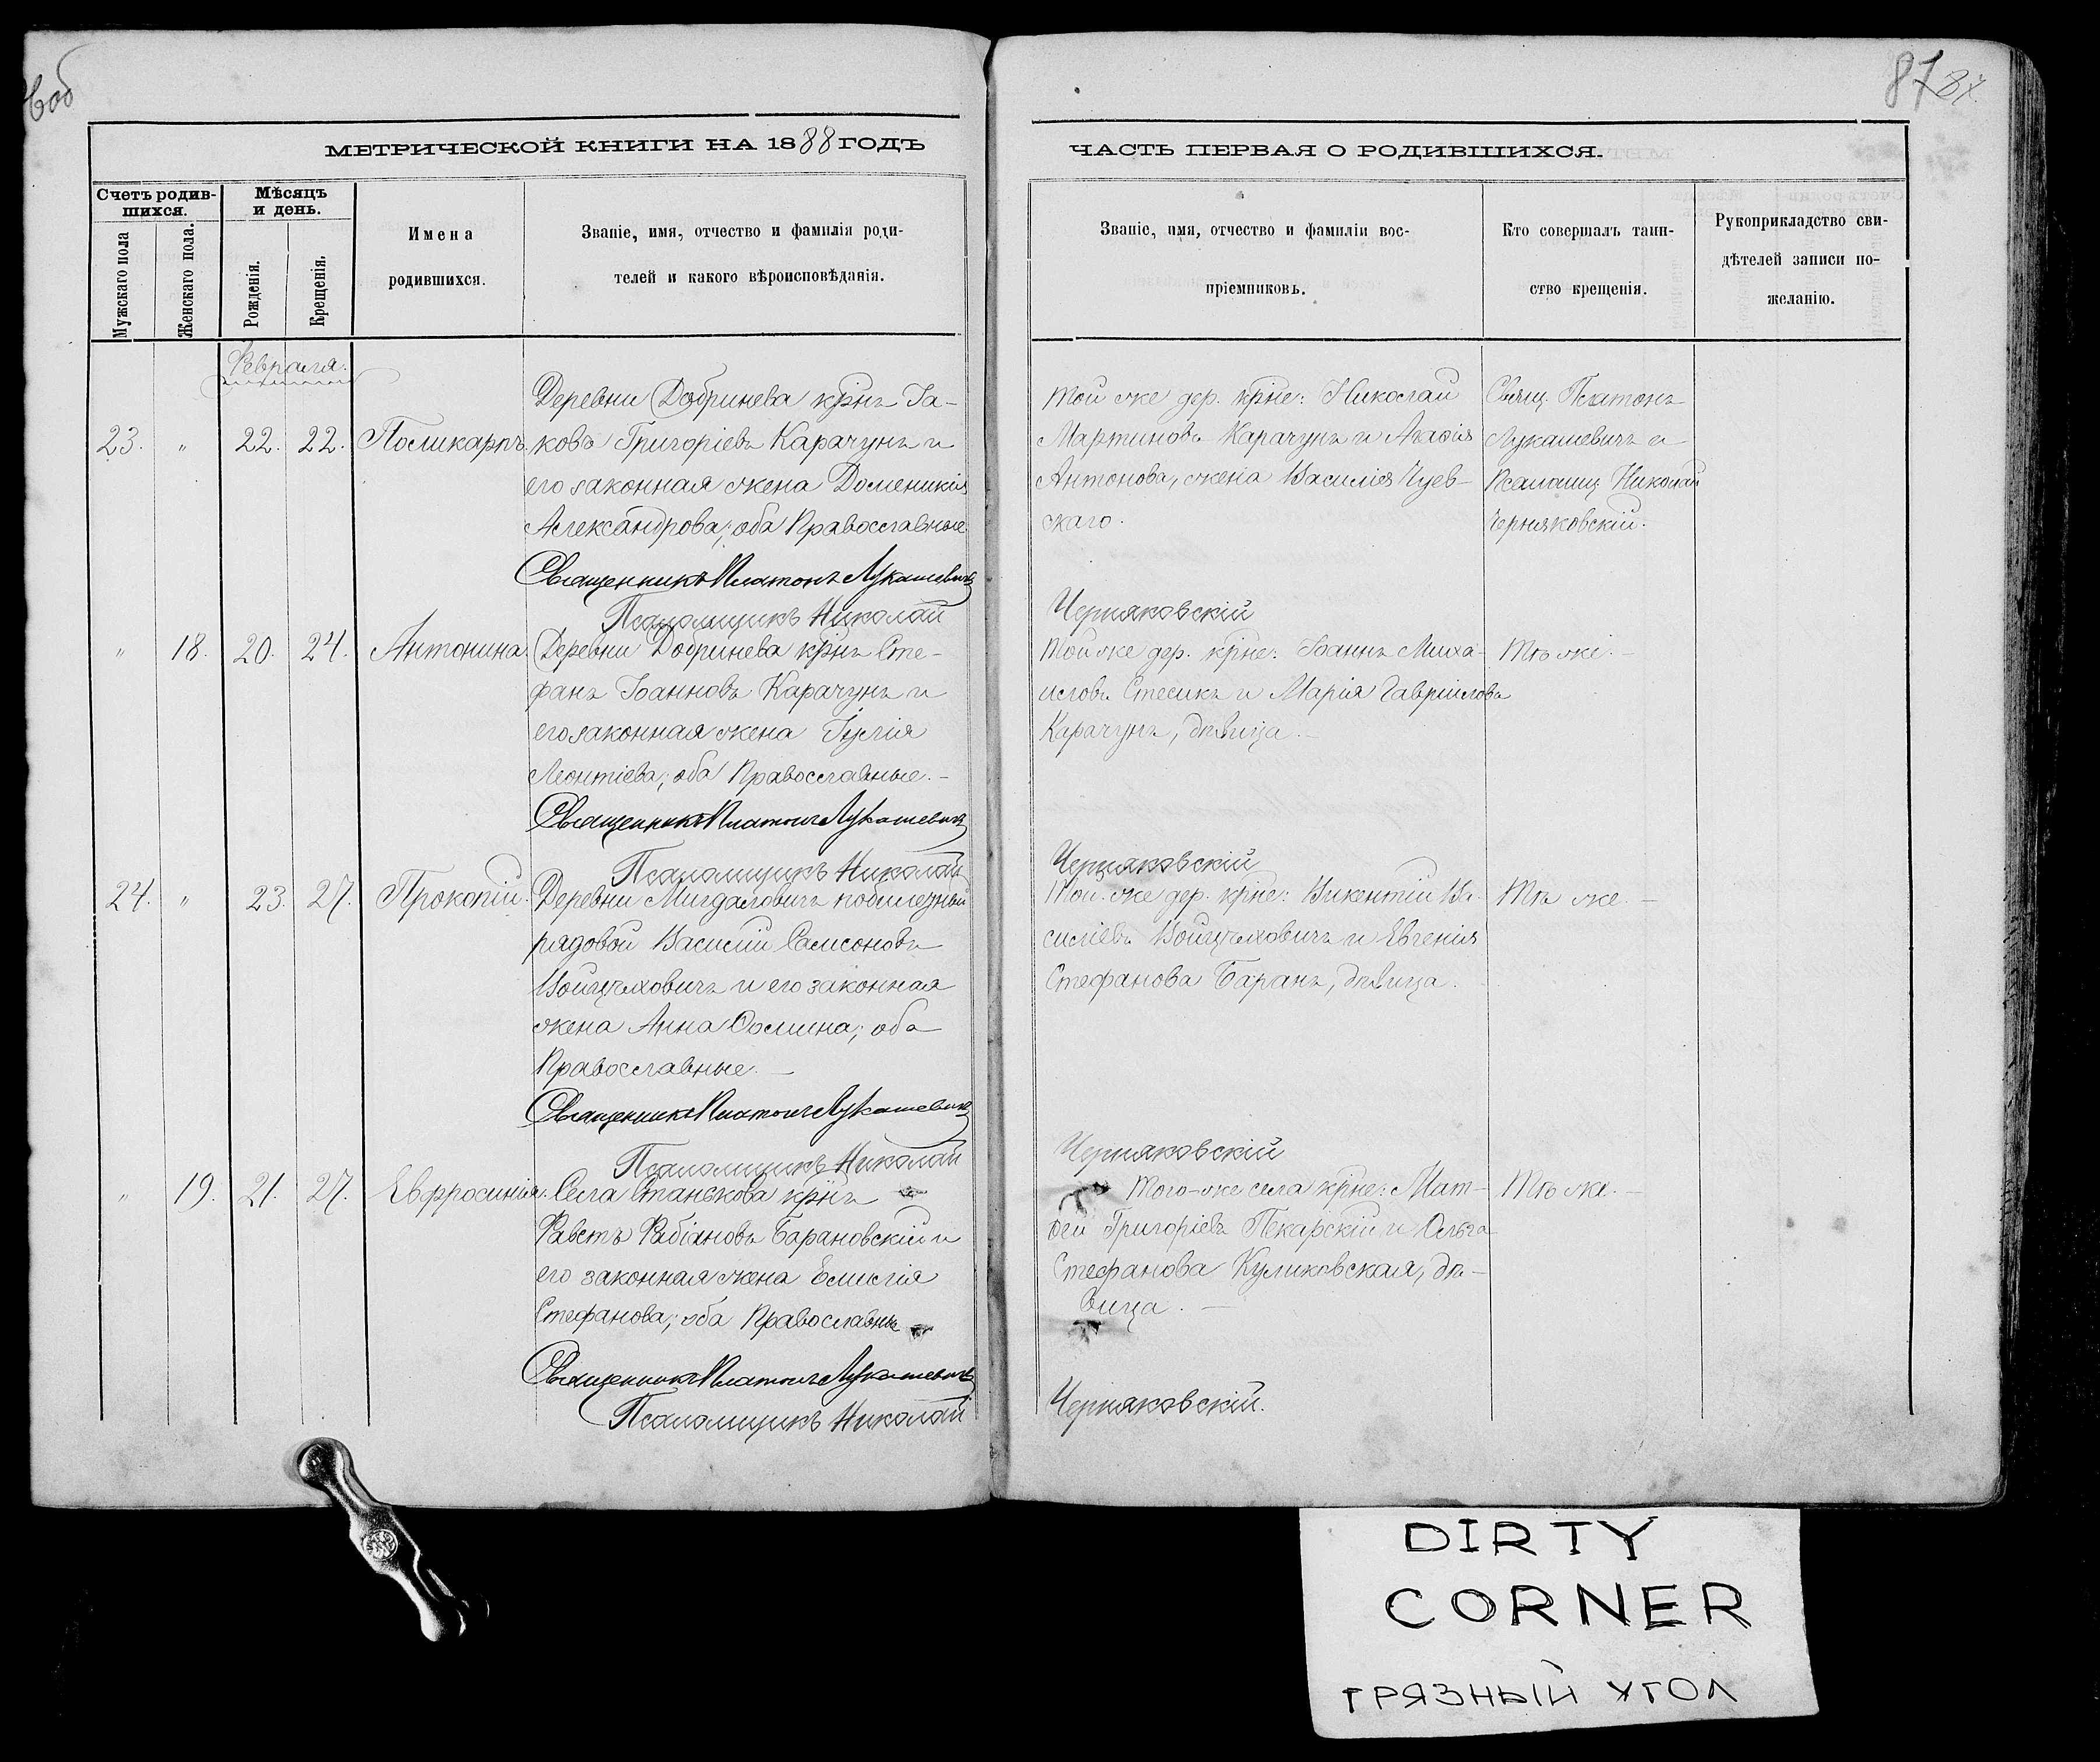 87 87.
МЕТРИЧЕСКОЙ КНИГИ НА 1888 ГОДЪ
Счетъ родив-
шихся.
Мѣсяцъ
и день.
Мужскаго пола
Женскаго пола.
Рожденія.
Крещенія.
Имена
родившихся.
Званіе, имя, отчество и фамилія роди-
телей и какого вѣроисповѣданія.
Февраля.
23. " 22. 22. Поликарпъ.
Деревни Добринева крнъ Іа-
ковъ Григоріевъ Карачунъ и
его законная жена Доменикія
Александрова; оба Православные.
Священникъ Платонъ Лукашевичъ
Псаломщикъ Николай
" 18. 20. 24. Антонина.
Деревни Добринева крнъ Сте-
фанъ Іоанновъ Карачунъ и
его законная жена Іулія
Леонтіева; оба Православные. –
Священникъ Платонъ Лукашевичъ
Псаломщикъ Николай
24. " 23. 27. Прокопій.
Деревни
рядовой Василій Самсоновъ
и его законная
жена Анна Ѳомина; оба
Православные. –
Священникъ Платонъ Лукашевичъ
Псаломщикъ Николай
" 19. 21. 27. Евфросинія.
Села Станькова крнъ
Фавстъ Фабіановъ Барановскій и
его законная жена Емилія
Стефанова; оба Православны
Священникъ Платонъ Лукашевичъ
Псаломщикъ Николай
ЧАСТЬ ПЕРВАЯ О РОДИВШИХСЯ.
Званіе, имя, отчество и фамиліи вос-
пріемниковъ.
Кто совершалъ таин-
ство крещенія.
Рукоприкладство сви-
дѣтелей записи по-
желанію.
Той же дер. крне: Николай
Мартиновъ Карачунъ и Агафія
Антонова, жена Василія Чуев-
скаго.
Свящ. Платонъ
Лукашевичъ и
Псаломщ. Николай
Черняковскій.
Черняковскій
Той же дер. крне: Іоаннъ Миха-
иловъ Стесикъ и Марія Гавріилова
Карачунъ, дѣвица. –
Тѣ же. –
Черняковскій
Той же дер. крне: Викентій Ва-
силіевъ и Евгенія
Стефанова Баранъ, дѣвица.
Тѣ же. –
Черняковскій
Того-же села крне: Мат-
ѳей Григоріевъ Пекарскій и Ольга
Стефанова Куликовская, дѣ-
вица. –
Тѣ же. –
Черняковскій.
DIRTY
CORNER
ГРЯЗНЫЙ УГОЛ